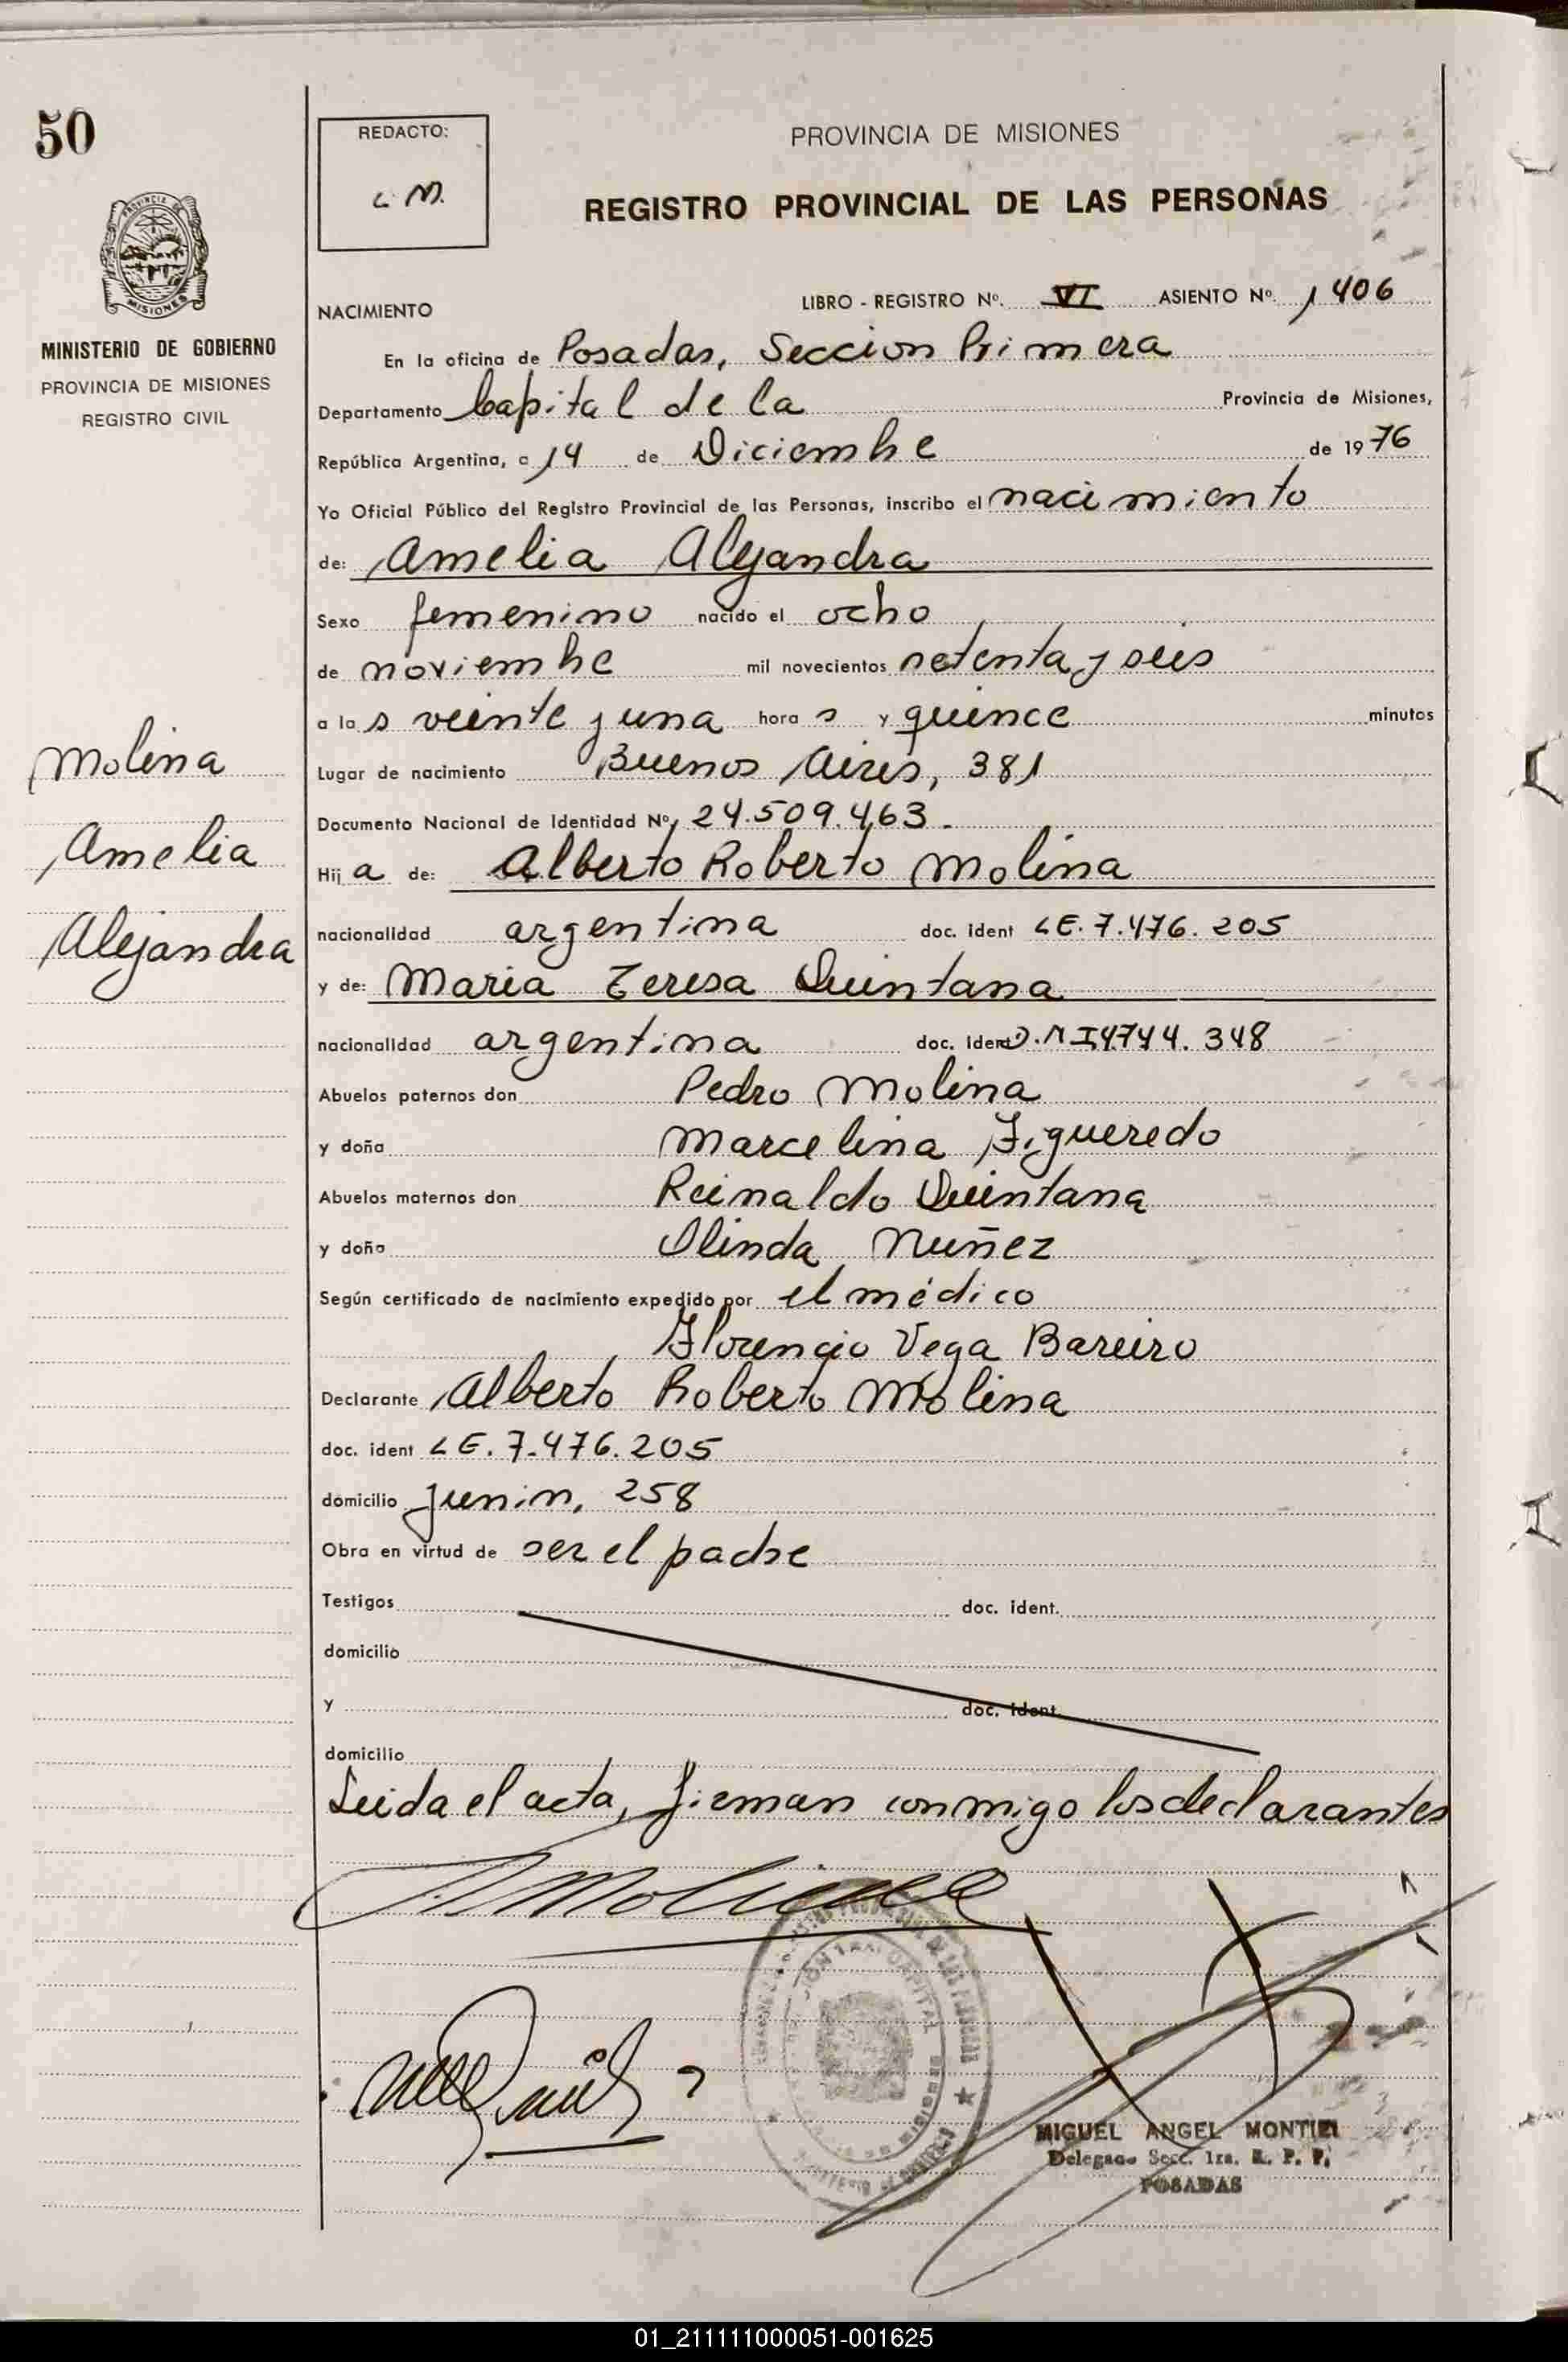 50
REDACTO:
L. M.
PROVINCIA DE MISIONES
REGISTRO PROVINCIAL DE LAS PERSONAS
MINISTERIO DE GOBIERNO
PROVINCIA DE MISIONES
REGISTRO CIVIL
NACIMIENTO
LIBRO - REGISTRO Nº. VI ASIENTO Nº. 1406
En la oficina de Posadas, Seccion Primera
Departamento Capital de la Provincia de Misiones,
República Argentina, a 14 de Diciembre de 1976
Yo Oficial Público del Registro Provincial de las Personas, inscribo el nacimiento
de: Amelia Alejandra
Sexo femenino nacido el ocho
de noviembre mil novecientos setenta y seis
a las veinte y una horas y quince minutos
Lugar de nacimiento Buenos Aires, 381
Documento Nacional de Identidad Nº 24.509.463.
Hija de: Alberto Roberto Molina
nacionalidad argentina doc. ident LE. 7.476.205
y de: Maria Teresa Quintana
nacionalidad argentina doc. ident D.N.I 4.744.348
Abuelos paternos don Pedro Molina
y doña Marcelina Figueredo
Abuelos maternos don Reinaldo Quintana
y doña Olinda Nuñez
Según certificado de nacimiento expedido por el médico
Florencio Vega Bareiro
Declarante Alberto Roberto Molina
doc. ident LE. 7.476.205
domicilio Junin, 258
Obra en virtud de ser el padre
Testigos doc. ident.
domicilio
y doc. ident.
domicilio
Leida el acta, firman conmigo los declarantes
Molina
Amelia
Alejandra
AMolina
MIGUEL ANGEL MONTIEL
Delegado Secc. 1ra. R. P. P.
POSADAS
01_211111000051-001625